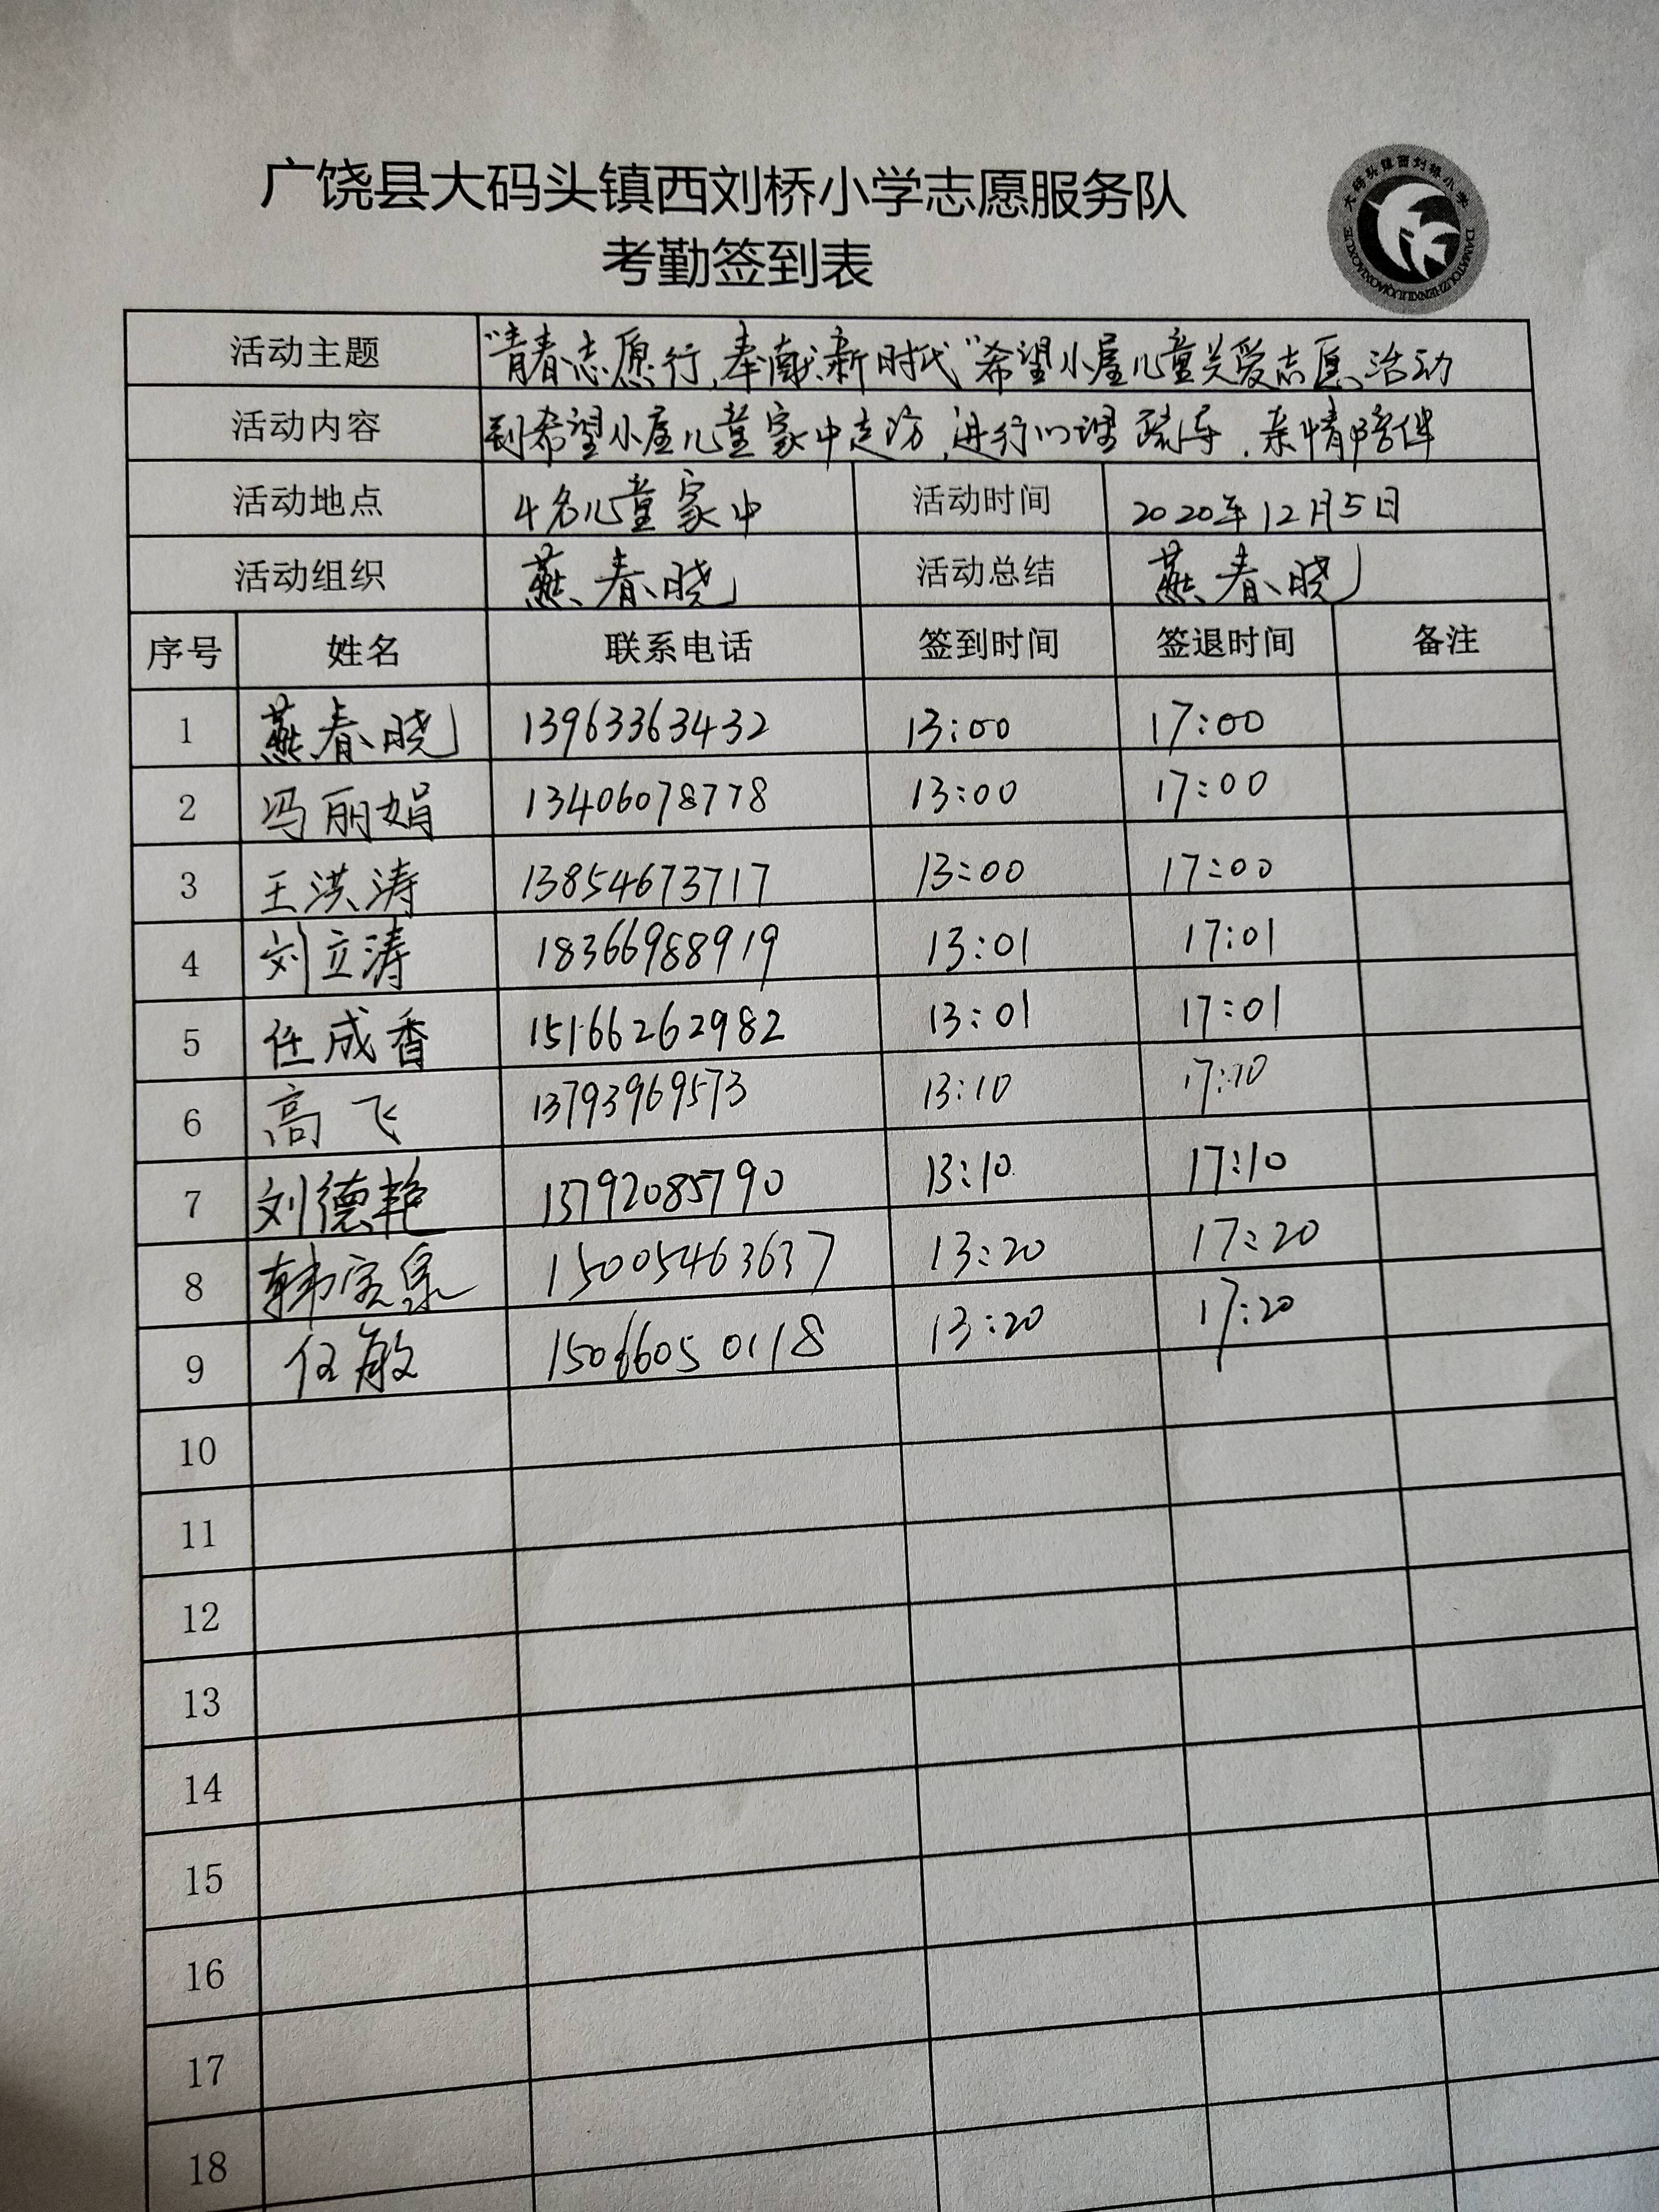 广饶县大码头镇西刘桥小学志愿服务队
大码头镇西刘桥小学
DAMATOUZHENXILIUQIAOXIAOXUE
考勤签到表
活动主题 "青春志愿行,奉献新时代"希望小屋儿童关爱志愿活动
活动内容 到希望小屋儿童家中走访,进行心理疏导,亲情陪伴
活动地点 4名儿童家中 活动时间 2020年12月5日
活动组织 燕春晓 活动总结 燕春晓
序号 姓名 联系电话 签到时间 签退时间 备注
1 燕春晓 13963363432 13:00 17:00
2 冯丽娟 13406078778 13:00 17:00
3 王洪涛 13854673717 13:00 17:00
4 刘立涛 18366988919 13:01 17:01
5 任成香 15166262982 13:01 17:01
6 高飞 13793969573 13:10 17:10
7 刘德艳 13792085790 13:10 17:10
8 韩宝泉 15005463637 13:20 17:20
9 任敏 15066050118 13:20 17:20
10
11
12
13
14
15
16
17
18